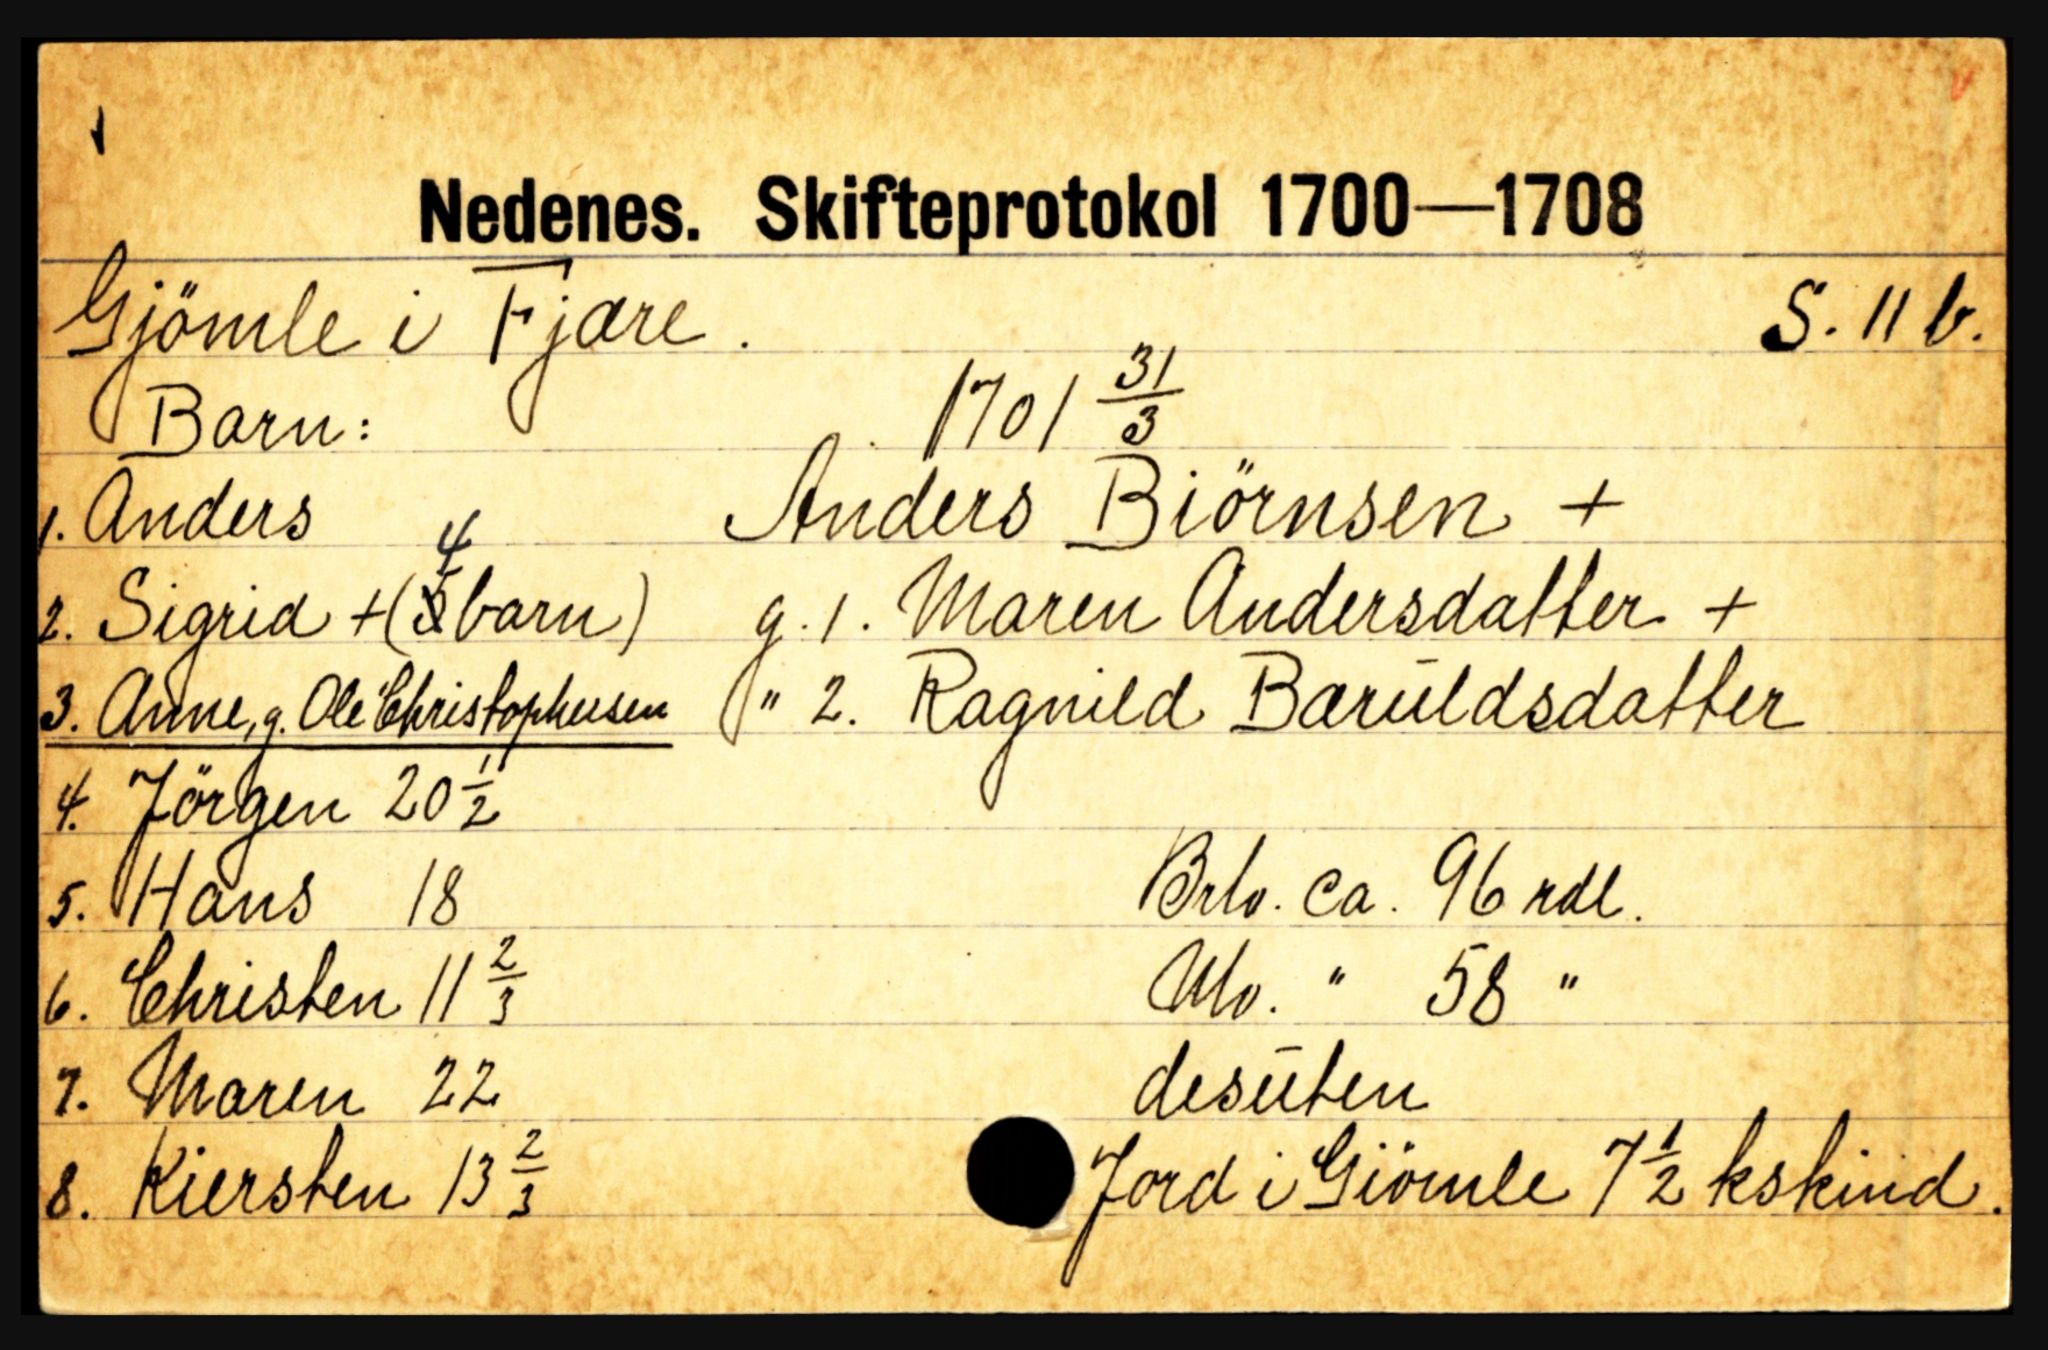 Nedenes. Skifteprotokol 1700—1708
Gjömle i Fjære. S. 11 b.
Barn: 1701 31/3
1. Anders Anders Biörnsen +
2. Sigrid + (4 barn) g. 1. Maren Andersdatter +
3. Anne, g. Ole Christophersen " 2. Ragnild Bærŭldsdatter
4. Jörgen 20 1/2
5. Hans 18 Brto. ca. 96 rdl.
6. Christen 11 2/3 Nto. " 58 "
7. Maren 22 desŭten
8. Kiersten 13 2/3 Jord i Giömle 7 1/2 kskind.